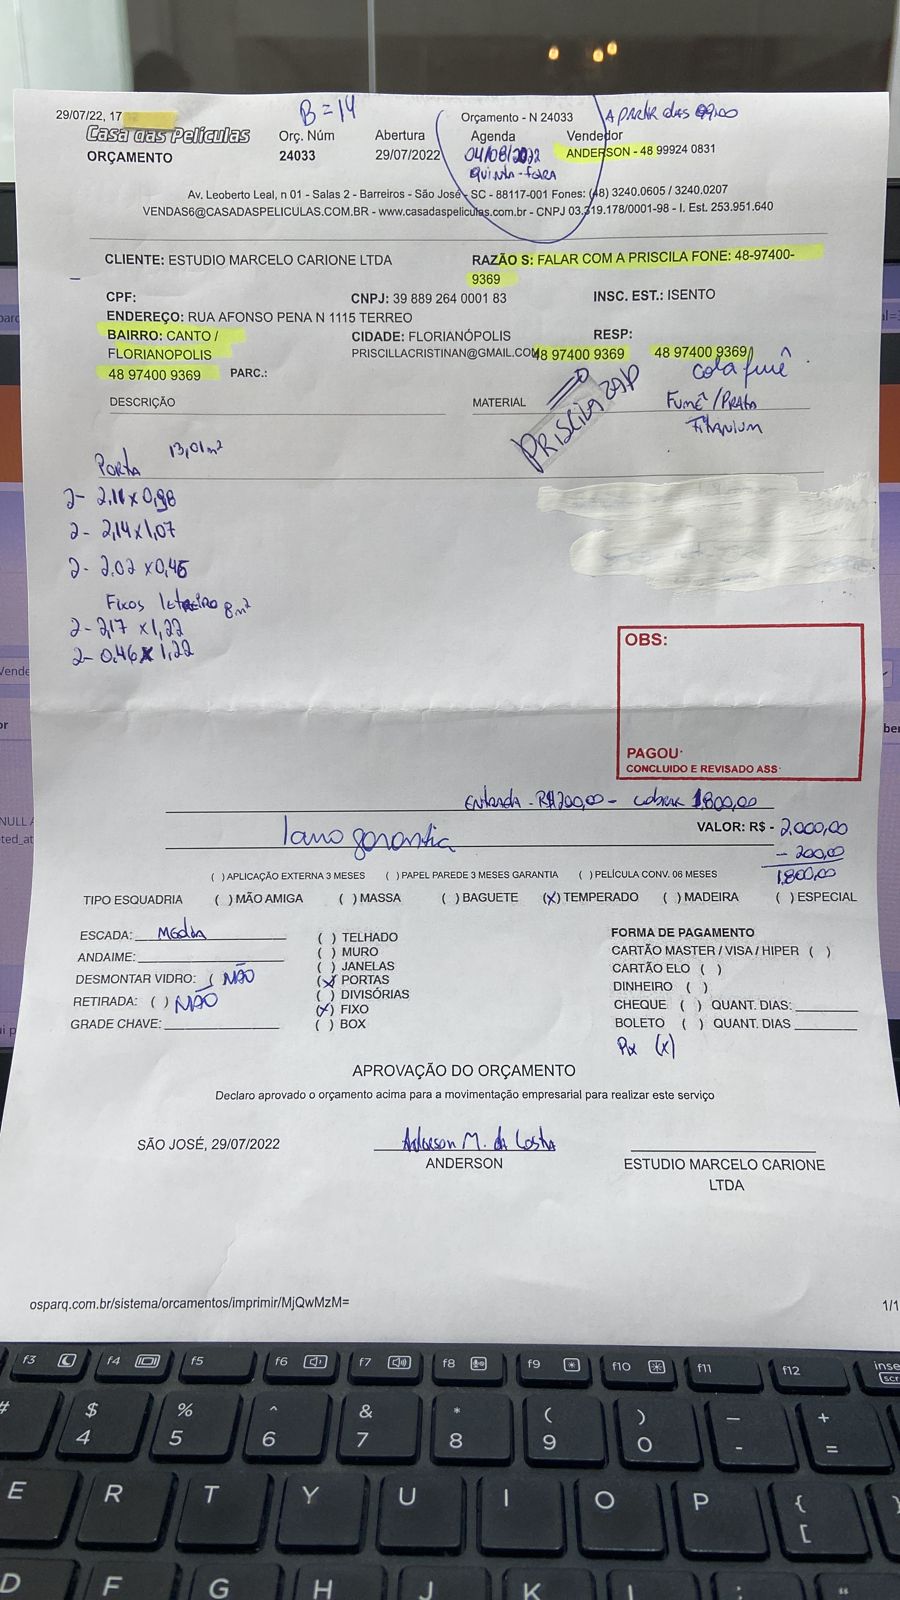 29/07/22, 17
B=14
Orçamento - N 24033
A PARTIR DAS 09:00
Casa das Películas
ORÇAMENTO
Orç. Núm
24033
Abertura
29/07/2022
Agenda
04/08/2022
QUINTA-FEIRA
Vendedor
ANDERSON - 48 99924 0831
Av. Leoberto Leal, n 01 - Salas 2 - Barreiros - São José - SC - 88117-001 Fones: (48) 3240.0605 / 3240.0207
VENDAS6@CASADASPELICULAS.COM.BR - www.casadaspeliculas.com.br - CNPJ 03.319.178/0001-98 - I. Est. 253.951.640
CLIENTE: ESTUDIO MARCELO CARIONE LTDA
RAZÃO S: FALAR COM A PRISCILA FONE: 48-97400-
9369
CPF:
CNPJ: 39 889 264 0001 83
INSC. EST.: ISENTO
ENDEREÇO: RUA AFONSO PENA N 1115 TERREO
BAIRRO: CANTO /
FLORIANOPOLIS
CIDADE: FLORIANÓPOLIS
PRISCILLACRISTINAN@GMAIL.COM
RESP:
48 97400 9369
48 97400 9369
48 97400 9369
PARC.:
DESCRIÇÃO
MATERIAL
PRISCILA ZAP
cola fumê
FUMÊ/PRATA
TITANIUM
PORTA 13,01m²
2- 2,11x0,98
2- 2,14x1,07
2- 2.02 x0,45
FIXOS LETREIRO 8m²
2- 2,17 x1,22
2- 0,46x1,22
OBS:
PAGOU
CONCLUIDO E REVISADO ASS
ENTRADA - R$200,00 - COBRAR 1.800,00
1 ano garantia
VALOR: R$ - 2.000,00
- 200,00
1.800,00
( ) APLICAÇÃO EXTERNA 3 MESES ( ) PAPEL PAREDE 3 MESES GARANTIA ( ) PELÍCULA CONV. 06 MESES
TIPO ESQUADRIA ( ) MÃO AMIGA ( ) MASSA ( ) BAGUETE (X) TEMPERADO ( ) MADEIRA ( ) ESPECIAL
ESCADA: MÉDIA
ANDAIME:
DESMONTAR VIDRO: ( NÃO
RETIRADA: ( ) NÃO
GRADE CHAVE:
( ) TELHADO
( ) MURO
( ) JANELAS
(X) PORTAS
( ) DIVISÓRIAS
(X) FIXO
( ) BOX
FORMA DE PAGAMENTO
CARTÃO MASTER / VISA / HIPER ( )
CARTÃO ELO ( )
DINHEIRO ( )
CHEQUE ( ) QUANT. DIAS:
BOLETO ( ) QUANT. DIAS
Pix (X)
APROVAÇÃO DO ORÇAMENTO
Declaro aprovado o orçamento acima para a movimentação empresarial para realizar este serviço
SÃO JOSÉ, 29/07/2022
Anderson M. da Costa
ANDERSON
ESTUDIO MARCELO CARIONE
LTDA
osparq.com.br/sistema/orcamentos/imprimir/MjQwMzM=
1/1
f3 f4 f5 f6 f7 f8 f9 f10 f11 f12 inse
scr
# $ % ^ & * ( ) — +
4 5 6 7 8 9 0 - =
E R T Y U I O P { [
D F G H J K L : “